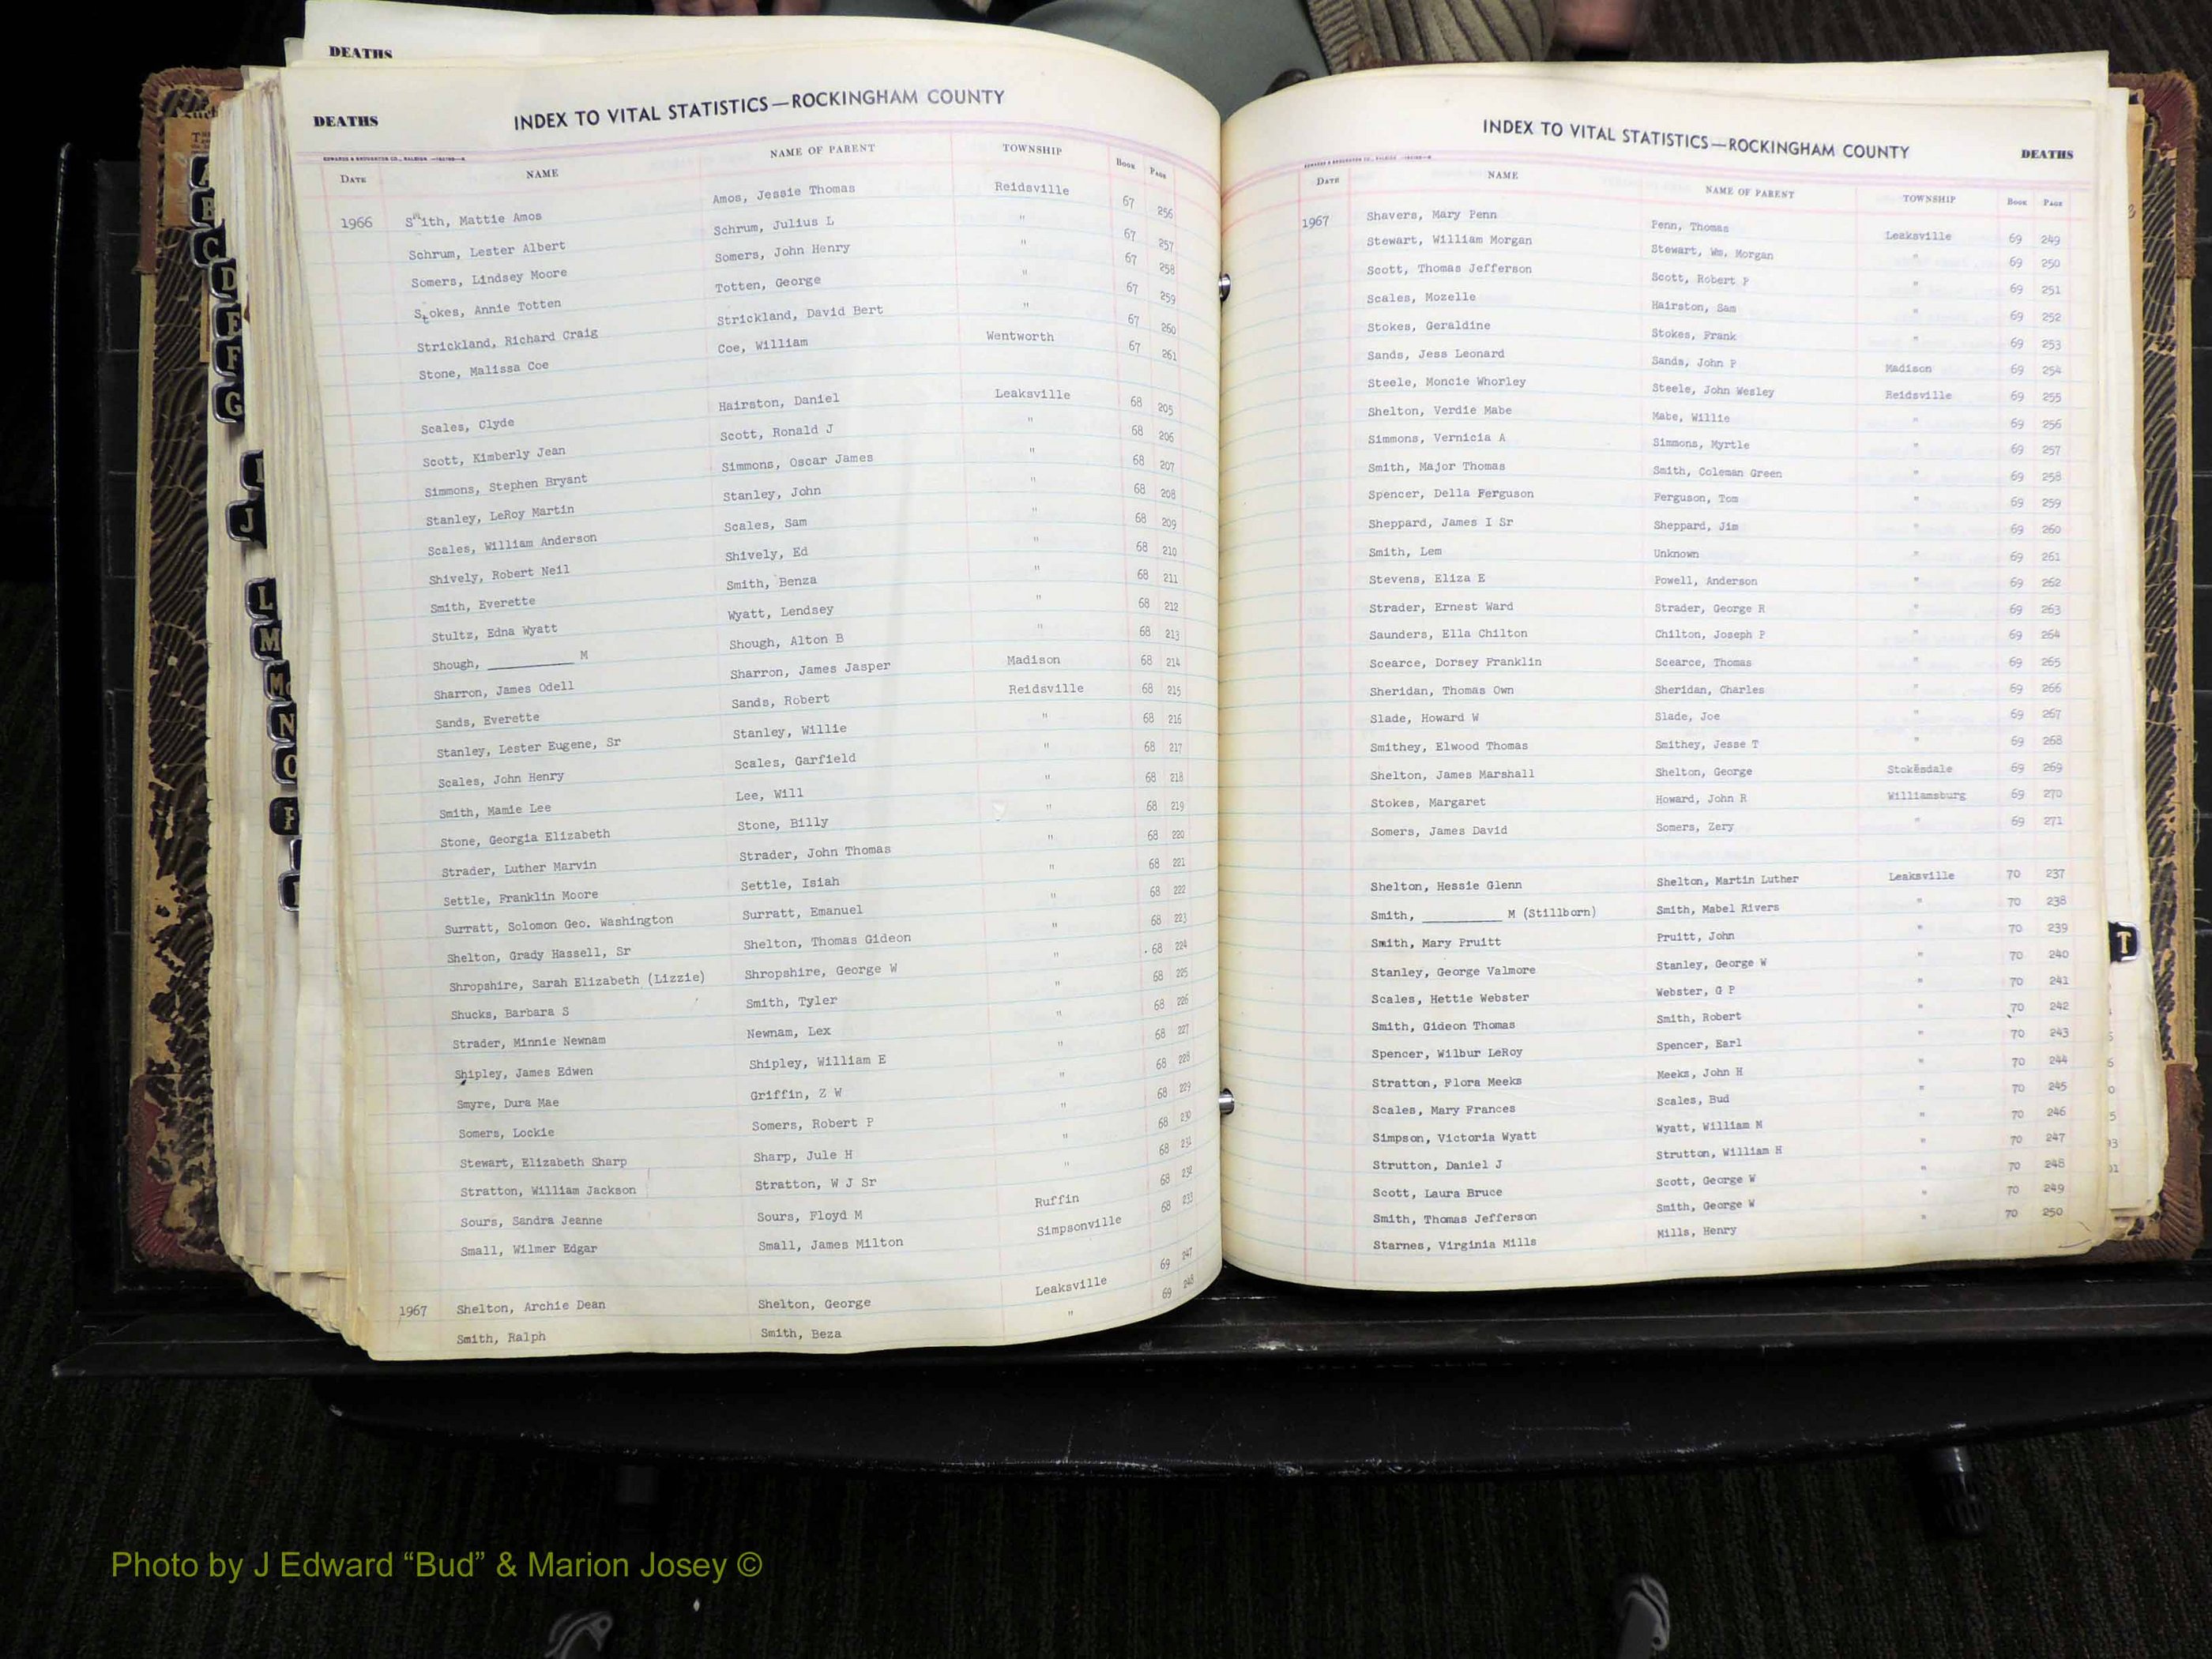 DEATHS
DEATHS
INDEX TO VITAL STATISTICS—ROCKINGHAM COUNTY
DATE NAME NAME OF PARENT TOWNSHIP BOOK PAGE
1966 Smith, Mattie Amos Amos, Jessie Thomas Reidsville 67 256
Schrum, Lester Albert Schrum, Julius L " 67 257
Somers, Lindsey Moore Somers, John Henry " 67 258
Stokes, Annie Totten Totten, George " 67 259
Strickland, Richard Craig Strickland, David Bert " 67 260
Stone, Malissa Coe Coe, William Wentworth 67 261
Scales, Clyde Hairston, Daniel Leaksville 68 205
Scott, Kimberly Jean Scott, Ronald J " 68 206
Simmons, Stephen Bryant Simmons, Oscar James " 68 207
Stanley, LeRoy Martin Stanley, John " 68 208
Scales, William Anderson Scales, Sam " 68 209
Shively, Robert Neil Shively, Ed " 68 210
Smith, Everette Smith, Benza " 68 211
Stultz, Edna Wyatt Wyatt, Lendsey " 68 212
Shough, __________ M Shough, Alton B " 68 213
Sharron, James Odell Sharron, James Jasper Madison 68 214
Sands, Everette Sands, Robert Reidsville 68 215
Stanley, Lester Eugene, Sr Stanley, Willie " 68 216
Scales, John Henry Scales, Garfield " 68 217
Smith, Mamie Lee Lee, Will " 68 218
Stone, Georgia Elizabeth Stone, Billy " 68 219
Strader, Luther Marvin Strader, John Thomas " 68 220
Settle, Franklin Moore Settle, Isiah " 68 221
Surratt, Solomon Geo. Washington Surratt, Emanuel " 68 222
Shelton, Grady Hassell, Sr Shelton, Thomas Gideon " 68 223
Shropshire, Sarah Elizabeth (Lizzie) Shropshire, George W " 68 224
Shucks, Barbara S Smith, Tyler " 68 225
Strader, Minnie Newnam Newnam, Lex " 68 226
Shipley, James Edwen Shipley, William E " 68 227
Smyre, Dura Mae Griffin, Z W " 68 228
Somers, Lockie Somers, Robert P " 68 229
Stewart, Elizabeth Sharp Sharp, Jule H " 68 230
Stratton, William Jackson Stratton, W J Sr " 68 231
Sours, Sandra Jeanne Sours, Floyd M Ruffin 68 232
Small, Wilmer Edgar Small, James Milton Simpsonville 68 233
1967 Shelton, Archie Dean Shelton, George Leaksville 69 247
Smith, Ralph Smith, Beza " 69 248
INDEX TO VITAL STATISTICS—ROCKINGHAM COUNTY
DEATHS
DATE NAME NAME OF PARENT TOWNSHIP BOOK PAGE
1967 Shavers, Mary Penn Penn, Thomas Leaksville 69 249
Stewart, William Morgan Stewart, Wm. Morgan " 69 250
Scott, Thomas Jefferson Scott, Robert P " 69 251
Scales, Mozelle Hairston, Sam " 69 252
Stokes, Geraldine Stokes, Frank " 69 253
Sands, Jess Leonard Sands, John P Madison 69 254
Steele, Moncie Whorley Steele, John Wesley Reidsville 69 255
Shelton, Verdie Mabe Mabe, Willie " 69 256
Simmons, Vernicia A Simmons, Myrtle " 69 257
Smith, Major Thomas Smith, Coleman Green " 69 258
Spencer, Della Ferguson Ferguson, Tom " 69 259
Sheppard, James I Sr Sheppard, Jim " 69 260
Smith, Lem Unknown " 69 261
Stevens, Eliza E Powell, Anderson " 69 262
Strader, Ernest Ward Strader, George R " 69 263
Saunders, Ella Chilton Chilton, Joseph P " 69 264
Scearce, Dorsey Franklin Scearce, Thomas " 69 265
Sheridan, Thomas Own Sheridan, Charles " 69 266
Slade, Howard W Slade, Joe " 69 267
Smithey, Elwood Thomas Smithey, Jesse T " 69 268
Shelton, James Marshall Shelton, George Stokesdale 69 269
Stokes, Margaret Howard, John R Williamsburg 69 270
Somers, James David Somers, Zery " 69 271
Shelton, Hessie Glenn Shelton, Martin Luther Leaksville 70 237
Smith, __________ M (Stillborn) Smith, Mabel Rivers " 70 238
Smith, Mary Pruitt Pruitt, John " 70 239
Stanley, George Valmore Stanley, George W " 70 240
Scales, Hettie Webster Webster, G P " 70 241
Smith, Gideon Thomas Smith, Robert " 70 242
Spencer, Wilbur LeRoy Spencer, Earl " 70 243
Stratton, Flora Meeks Meeks, John H " 70 244
Scales, Mary Frances Scales, Bud " 70 245
Simpson, Victoria Wyatt Wyatt, William M " 70 246
Strutton, Daniel J Strutton, William H " 70 247
Scott, Laura Bruce Scott, George W " 70 248
Smith, Thomas Jefferson Smith, George W " 70 249
Starnes, Virginia Mills Mills, Henry " 70 250
A
B
C
D
E
F
G
I
J
L
M
Mc
N
O
P
T
Photo by J Edward “Bud” & Marion Josey ©